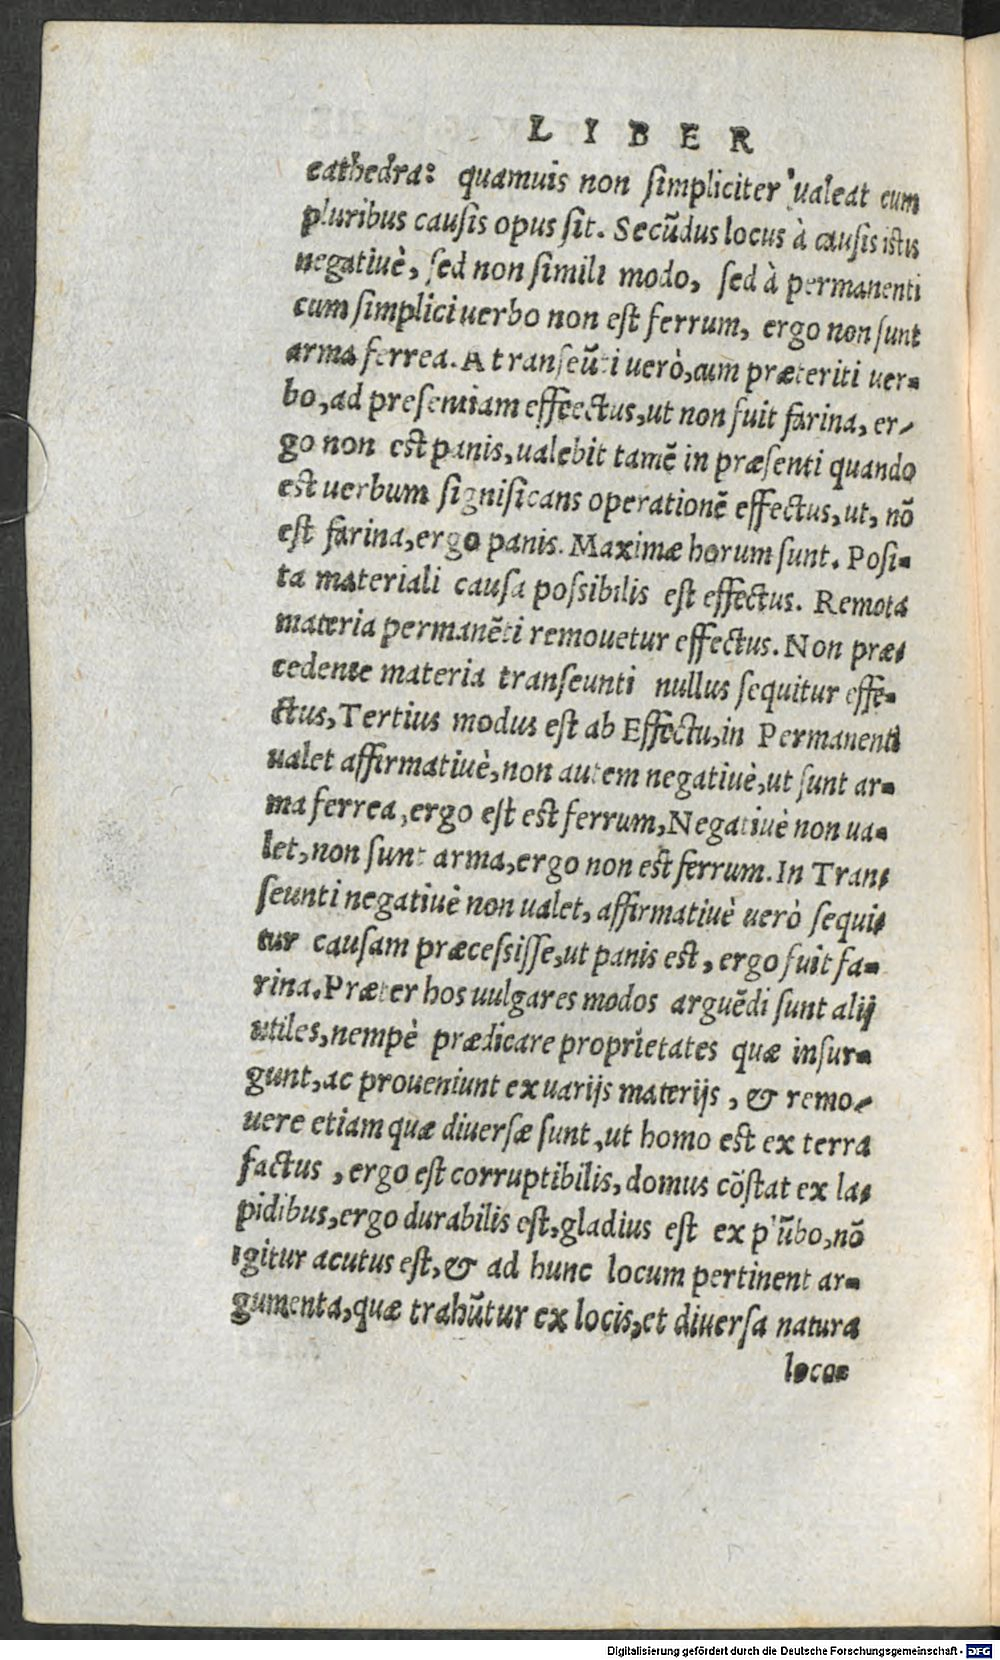 LIBER
cathedra: quamuis non ſimpliciter ualeat cum
pluribus cauſis opus ſit. Secũdus locus à cauſis iſtis
negatiuè, ſed non ſimili modo, ſed à permanenti
cum ſimplici uerbo non eſt ferrum, ergo non ſunt
arma ferrea. A tranſeũti uerò, cum præteriti uer=
bo, ad preſentiam effectus, ut non fuit farina, er-
go non eſt panis, ualebit tamẽ in præſenti quando
eſt uerbum ſignificans operationẽ effectus, ut, nõ
eſt farina, ergo panis. Maximæ horum ſunt. Poſi=
ta materiali cauſa poſsibilis eſt effectus. Remota
materia permanẽti remouetur effectus. Non præ=
cedente materia tranſeunti nullus ſequitur effe=
ctus, Tertius modus eſt ab Effectu, in Permanenti
ualet affirmatiuè, non autem negatiuè, ut ſunt ar=
ma ferrea, ergo eſt eſt ferrum, Negatiuè non ua=
let, non ſunt arma, ergo non eſt ferrum. In Tran=
ſeunti negatiuè non ualet, affirmatiuè uerò ſequi=
tur cauſam præceſsiſſe, ut panis eſt, ergo fuit fa=
rina. Præter hos uulgares modos arguẽdi ſunt alij
utiles, nempè prædicare proprietates quæ inſur=
gunt, ac proueniunt ex uarijs materijs, & remo-
uere etiam quæ diuerſæ ſunt, ut homo eſt ex terra
factus, ergo eſt corruptibilis, domus cõſtat ex la=
pidibus, ergo durabilis eſt, gladius eſt ex plũbo, nõ
igitur acutus eſt, & ad hunc locum pertinent ar=
gumenta, quæ trahũtur ex locis, et diuerſa natura
loco=
Digitalisierung gefördert durch die Deutsche Forschungsgemeinschaft - DFG